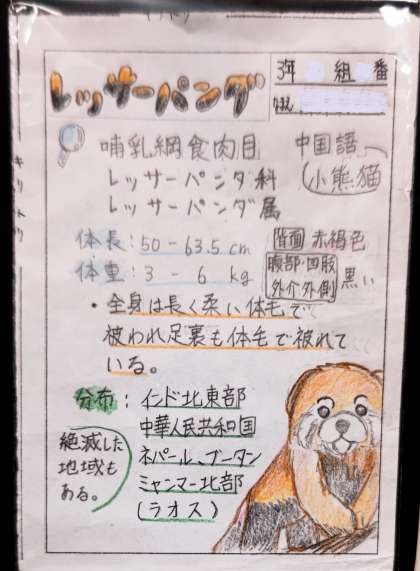 キリトリ
レッサーパンダ
3年 組 番
哺乳綱食肉目
レッサーパンダ科
レッサーパンダ属
中国語
小熊猫
体長:50-63.5cm
体重:3-6kg
背面 赤褐色
腹部・四肢
外介外側 黒い
・全身は長く柔い体毛で
被われ足裏も体毛で被れて
いる。
分布:インド北東部
中華人民共和国
ネパール、ブータン
ミャンマー北部
(ラオス)
絶滅した
地域も
ある。